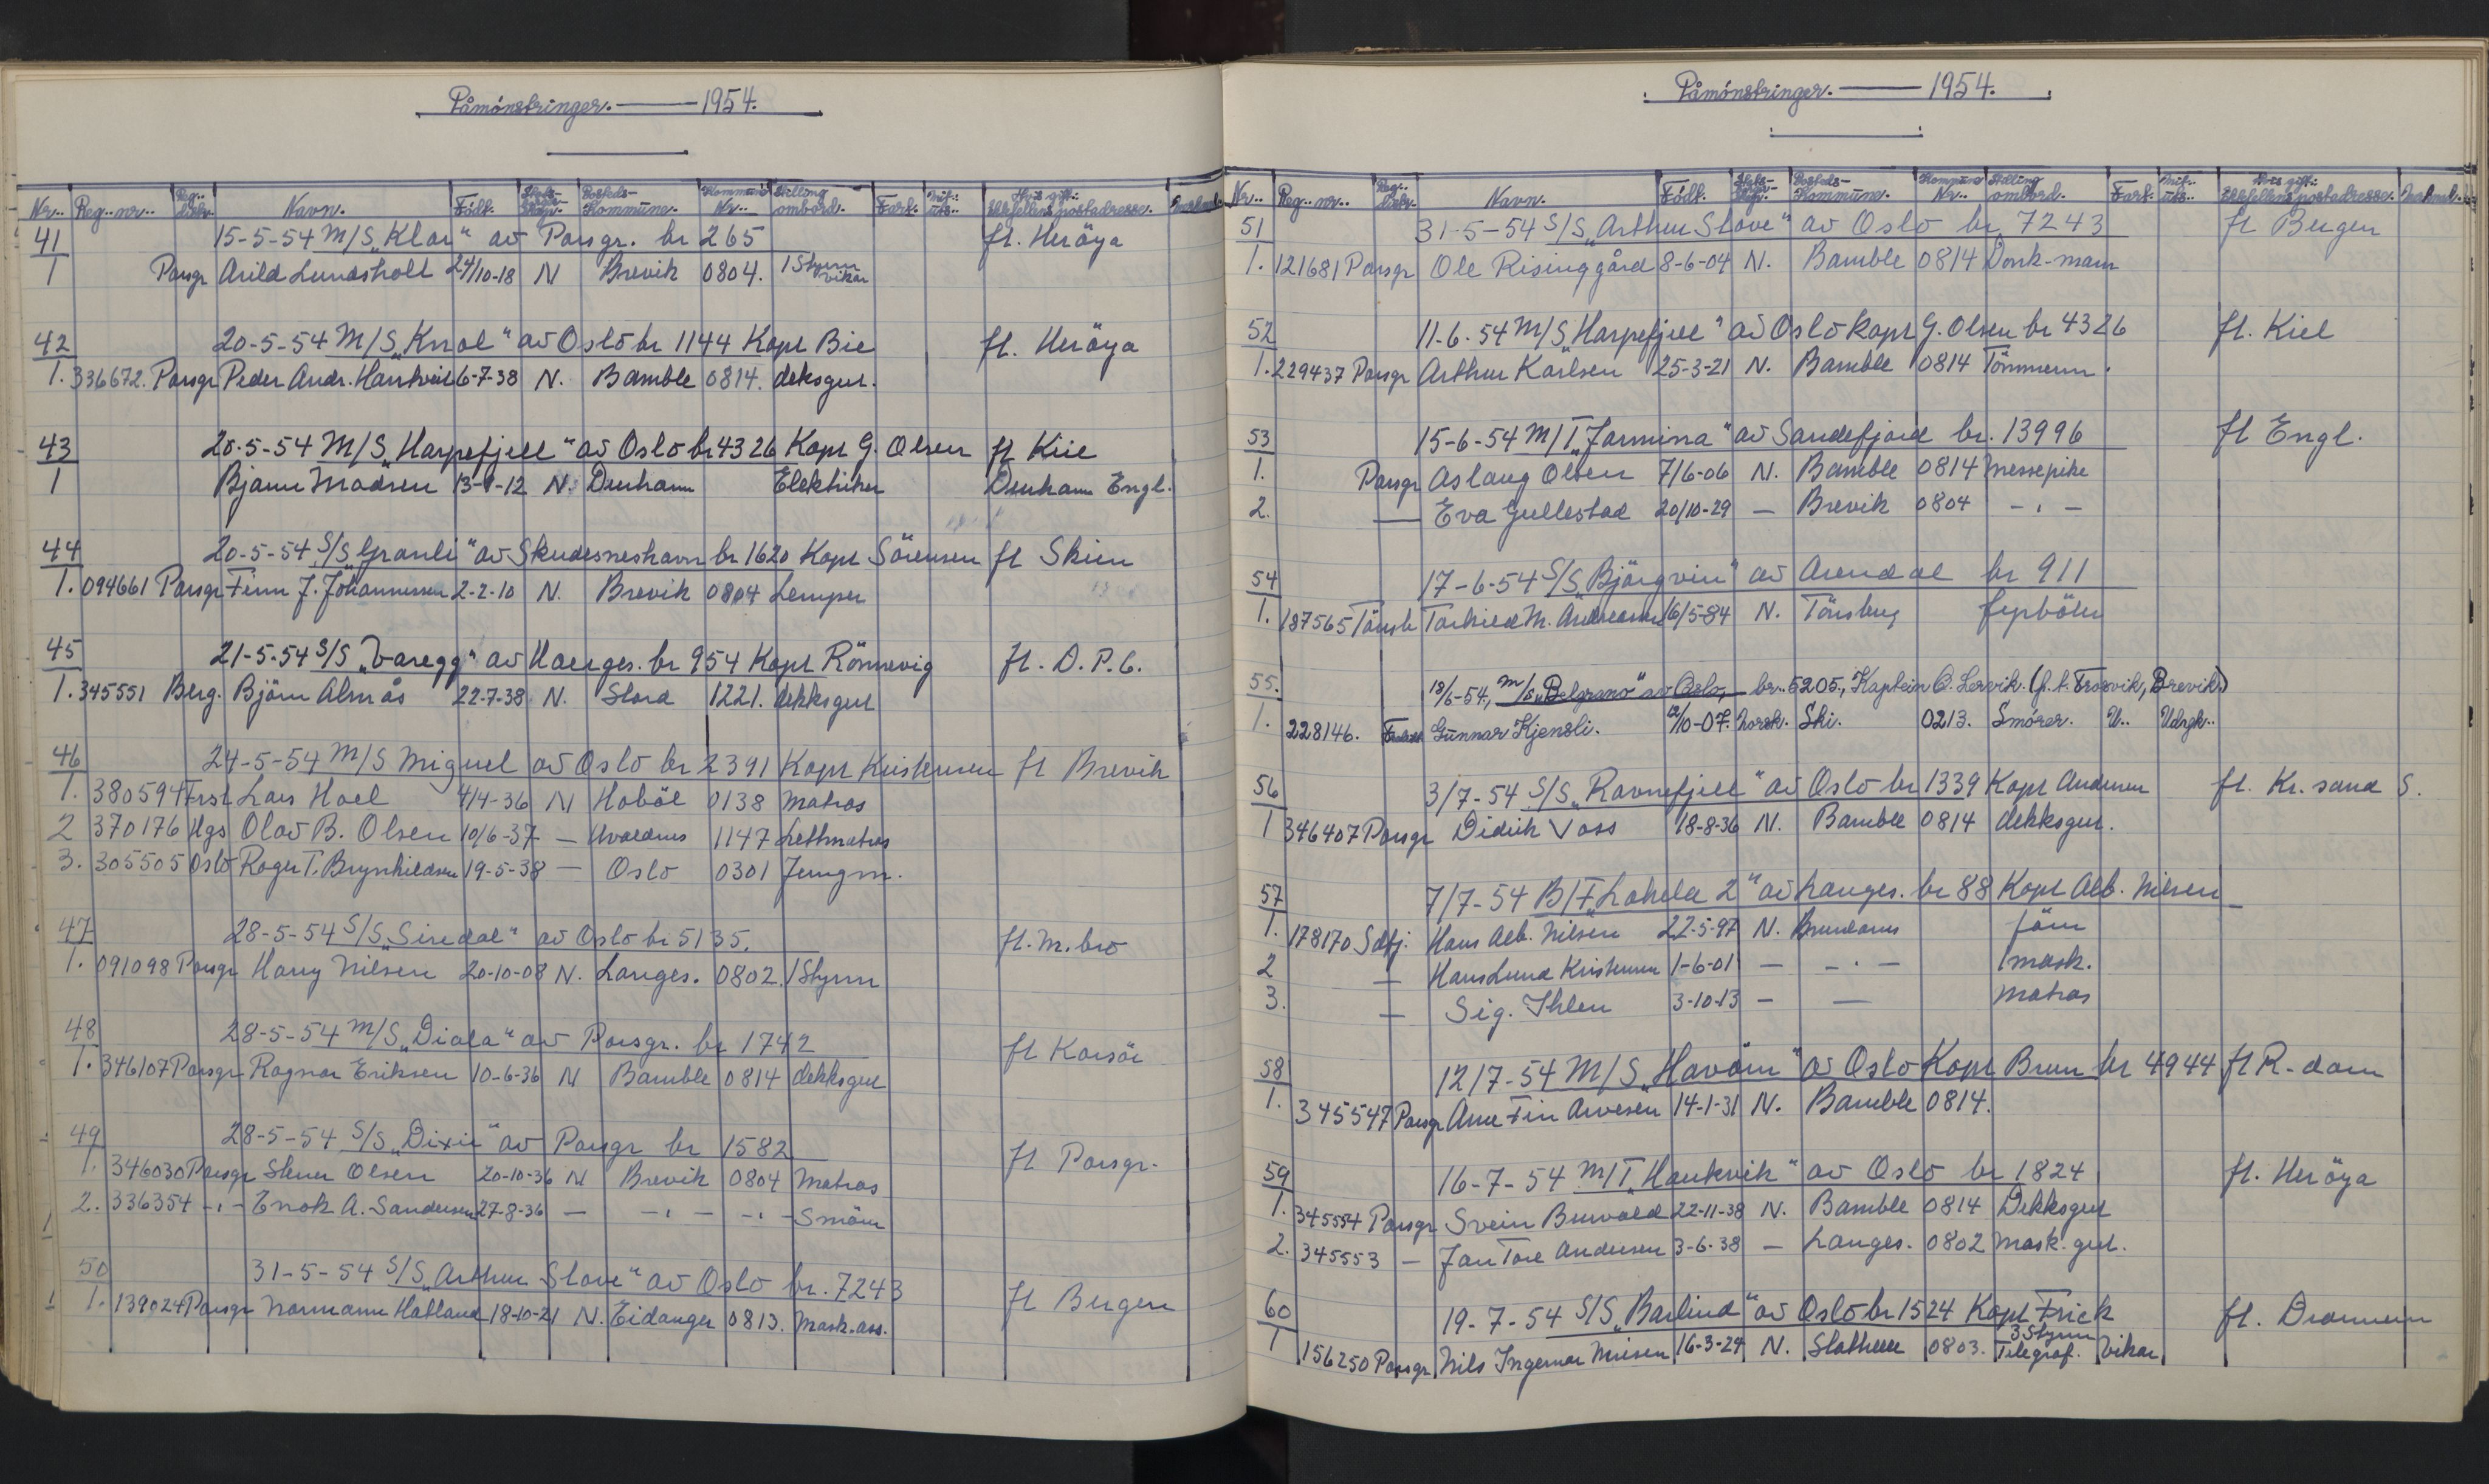 Påmönstringer. — 1954.
Nr.. Reg.. nr.. Reg.. Navn. Född. Bosteds-Kommune. Kommune Nr.. Stilling ombord. Fart. Hvis gift: Ektefellens postadresse.
41 15-5-54 M/S „Klar" av Porsgr. br 265 fl. Heröya
1 Porsgr Arild Lundsholt 24/10-18 N Brevik 0804. 1 Styrm vikar
42 20-5-54 M/S „Knol" av Oslo br 1144 Kapt Bie fl. Heröya
1. 336672. Porsgr Peder Andr. 6-7-38 N. Bamble 0814. deksgut.
43 20-5-54 M/S „Harpefjell" av Oslo br 4326 Kapt G. Olsen fl Kiel
1 Bjarne Madsen 13-1-12 N. Durham Elektriker Durham Engl.
44 20-5-54 S/S „Granli" av Skudesneshavn br 1620 Kapt Sörensen fl Skien
1. 094661 Porsgr Finn J. Johannessen 2-2-10 N. Brevik 0804 Lemper
45 21-5-54 S/S „Varegg" av Hauges. br 954 Kapt Rönnevig fl. D.P.6.
1. 345551 Berg. Björn Almås 22-7-38. N. Stord 1221. dekksgut
46 24-5-54 M/S Miguel av Oslo br 2391 Kapt Kristensen fl Brevik
1. 380594 Frst Lars Hoel 4/4-36 N Hoböl 0138 Matros
2 370176 Hgs Olav B. Olsen 10/6-37 — Avaldsnes 1147 Lettmatros
3. 305505 Oslo Roger T. Brynhildsen 19-5-38 — Oslo 0301 Jungm.
47 28-5-54 S/S „Siredal" av Oslo br 5135. fl. M.bro
1. 091098 Porsgr Harry Nilsen 20-10-08 N. Langes. 0802. 1 Styrm
48 28-5-54 M/S „Diala" av Porsgr. br 1742 fl Korsör
1. 346107 Porsgr Ragnar Eriksen 10-6-36 N Bamble 0814 dekksgut
49 28-5-54 S/S „Dixie" av Porsgr br 1582 fl Porsgr.
1. 346030 Porsgr Steinar Olsen 20-10-36 N Brevik 0804 Matros
2. 336354 -"- Enok A. Sandersen 27-8-36 — -"- -"- Smörer
50 31-5-54 S/S „Arthur Stove" av Oslo br. 7243 fl Bergen
1. 139024 Porsgr Normann Hatland 18-10-21 N. Eidanger 0813. Mask.ass.
Påmönstringer. — 1954.
Nr.. Reg.. nr.. Reg.. Navn. Född. Bosteds-Kommune. Kommune Nr.. Stilling ombord. Fart. Hvis gift: Ektefellens postadresse.
51 31-5-54 S/S „Arthur Stove" av Oslo br. 7243 fl Bergen
1. 121681 Porsgr Ole Risinggård 8-6-04 N. Bamble 0814 Donk-mann
52 11-6-54 M/S „Harpefjell" av Oslo kapt G. Olsen br 4326 fl. Kiel
1. 229437 Porsgr Arthur Karlsen 25-3-21 N. Bamble 0814 Tömmerm.
53 15-6-54 M/T „Jarmina" av Sandefjord br. 13996 fl Engl.
1. Porsgr Aslaug Olsen 7/6-06 N. Bamble 0814 Messepike
2. — Eva Gullestad 20/10-29 — Brevik 0804 -"-
54 17-6-54 S/S „Björgvin" av Arendal br 911
1. 187565 Tönsb Torkild M. Andreassen 16/5-84 N. Tönsberg fyrböter
55. 18/6-54, M/S „Belgrano" av Oslo, br.. 5205., Kaptein O. Lervik. (p.t. Trosvik, Brevik.)
1. 228146. Gunnar Kjensli. 12/10-07. norsk. Ski. 0213. Smörer. U.. Udsgk..
56 3/7-54 S/S „Ravnefjell" av Oslo br 1339 Kapt Andersen fl. Kr.sand S.
1 346407 Porsgr Didrik Voss 18-8-36 N. Bamble 0814 dekksgut.
57 7/7-54 B/F „Lohela 2" av Langes. br 88 Kapt Alb. Nilsen
1. 178170 Sdfj. Hans Alb. Nilsen 22-5-97 N. Brunlanes förer
2 — Hans Lund Kristensen 1-6-01 — -"- 1 mask.
3. — Sig. Ihlen 3-10-13 — — Matros
58 12/7-54 M/S „Havörn" av Oslo Kapt Bruun br 4944 fl R-dam
1. 345547 Porsgr Arne Fin Arvesen 14-1-31 N. Bamble 0814.
59 16-7-54 M/T „Haukvik" av Oslo br 1824 fl. Heröya
1. 345554 Porsgr Svein Buvold 22-11-38 N. Bamble 0814 Dekksgut
2. 345553 — Jan Tore Andersen 3-6-38 — Langes. 0802 Mask.gut.
60 19-7-54 S/S „Barlind" av Oslo br 1524 Kapt Frick fl. Drammen
1 156250 Porsgr Nils Ingemar Nilsen 16-3-24 N. Stathelle 0803. 3 Styrm Telegraf. Vikar